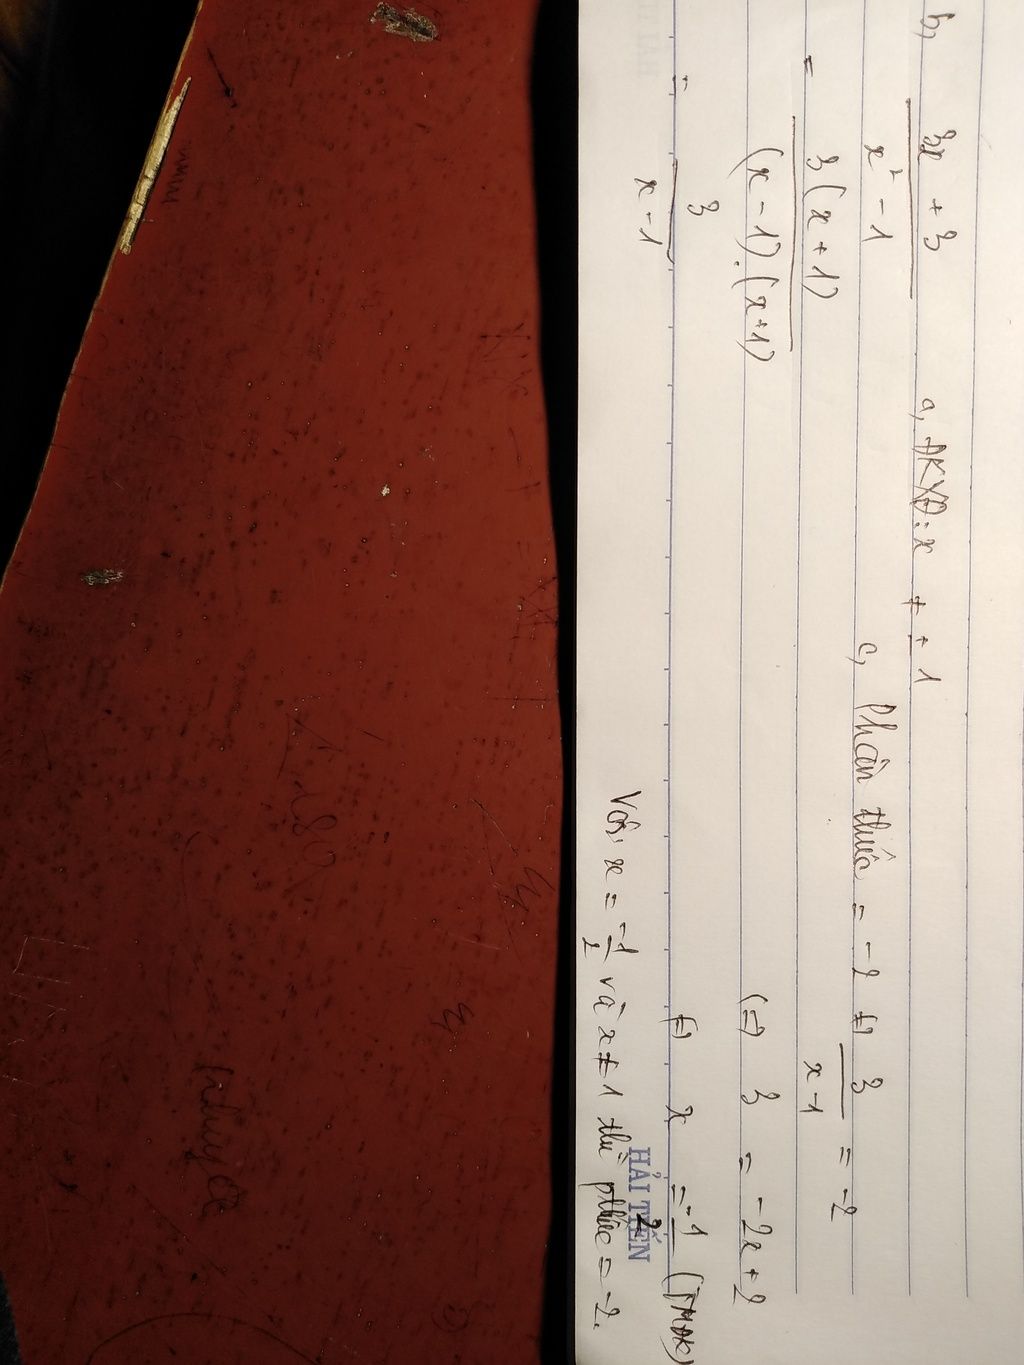 b, 3x + 3
x² - 1
a, ĐKXĐ: x ≠ ± 1
= 3(x + 1)
(x - 1).(x+1)
= 3
x - 1
c, Phân thức = -2 (=) 3
x - 1
= -2
(=) 3 = -2x + 2
(=) x = -1
2
(TMĐK)
Với x = -1
2
và x ≠ 1 thì pthức = -2.
HẢI TIẾN